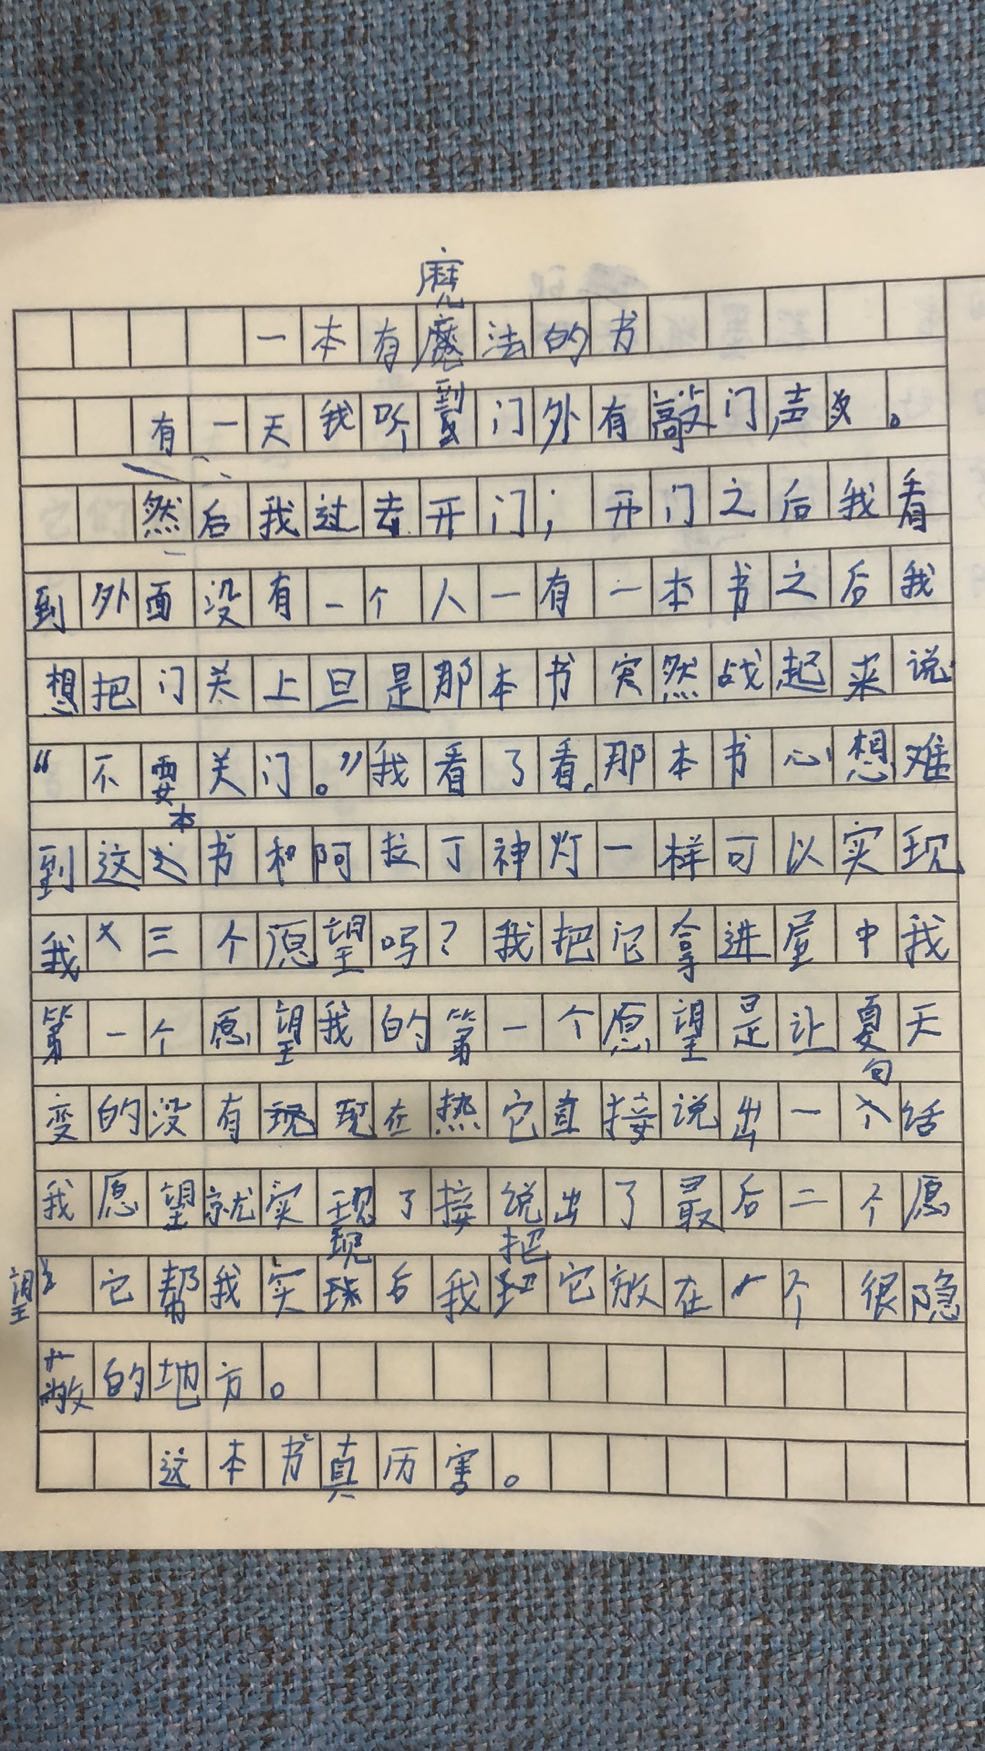 一本有魔法的书
有一天我听到门外有敲门声。
然后我过去开门，开门之后我看
到外面没有一个人一有一本书之后我
想把门关上旦是那本书突然战起来说
“不要关门。”我看了看，那本书心想难
到这本书和阿拉丁神灯一样可以实现
我三个愿望吗？我把它拿进屋中我
第一个愿望我的第一个愿望是让夏天
变的没有现在热它直接说出一句话
我愿望就实现了接说出了最后二个愿
望它帮我实现后我把它放在一个很隐
蔽的地方。
这本书真历害。